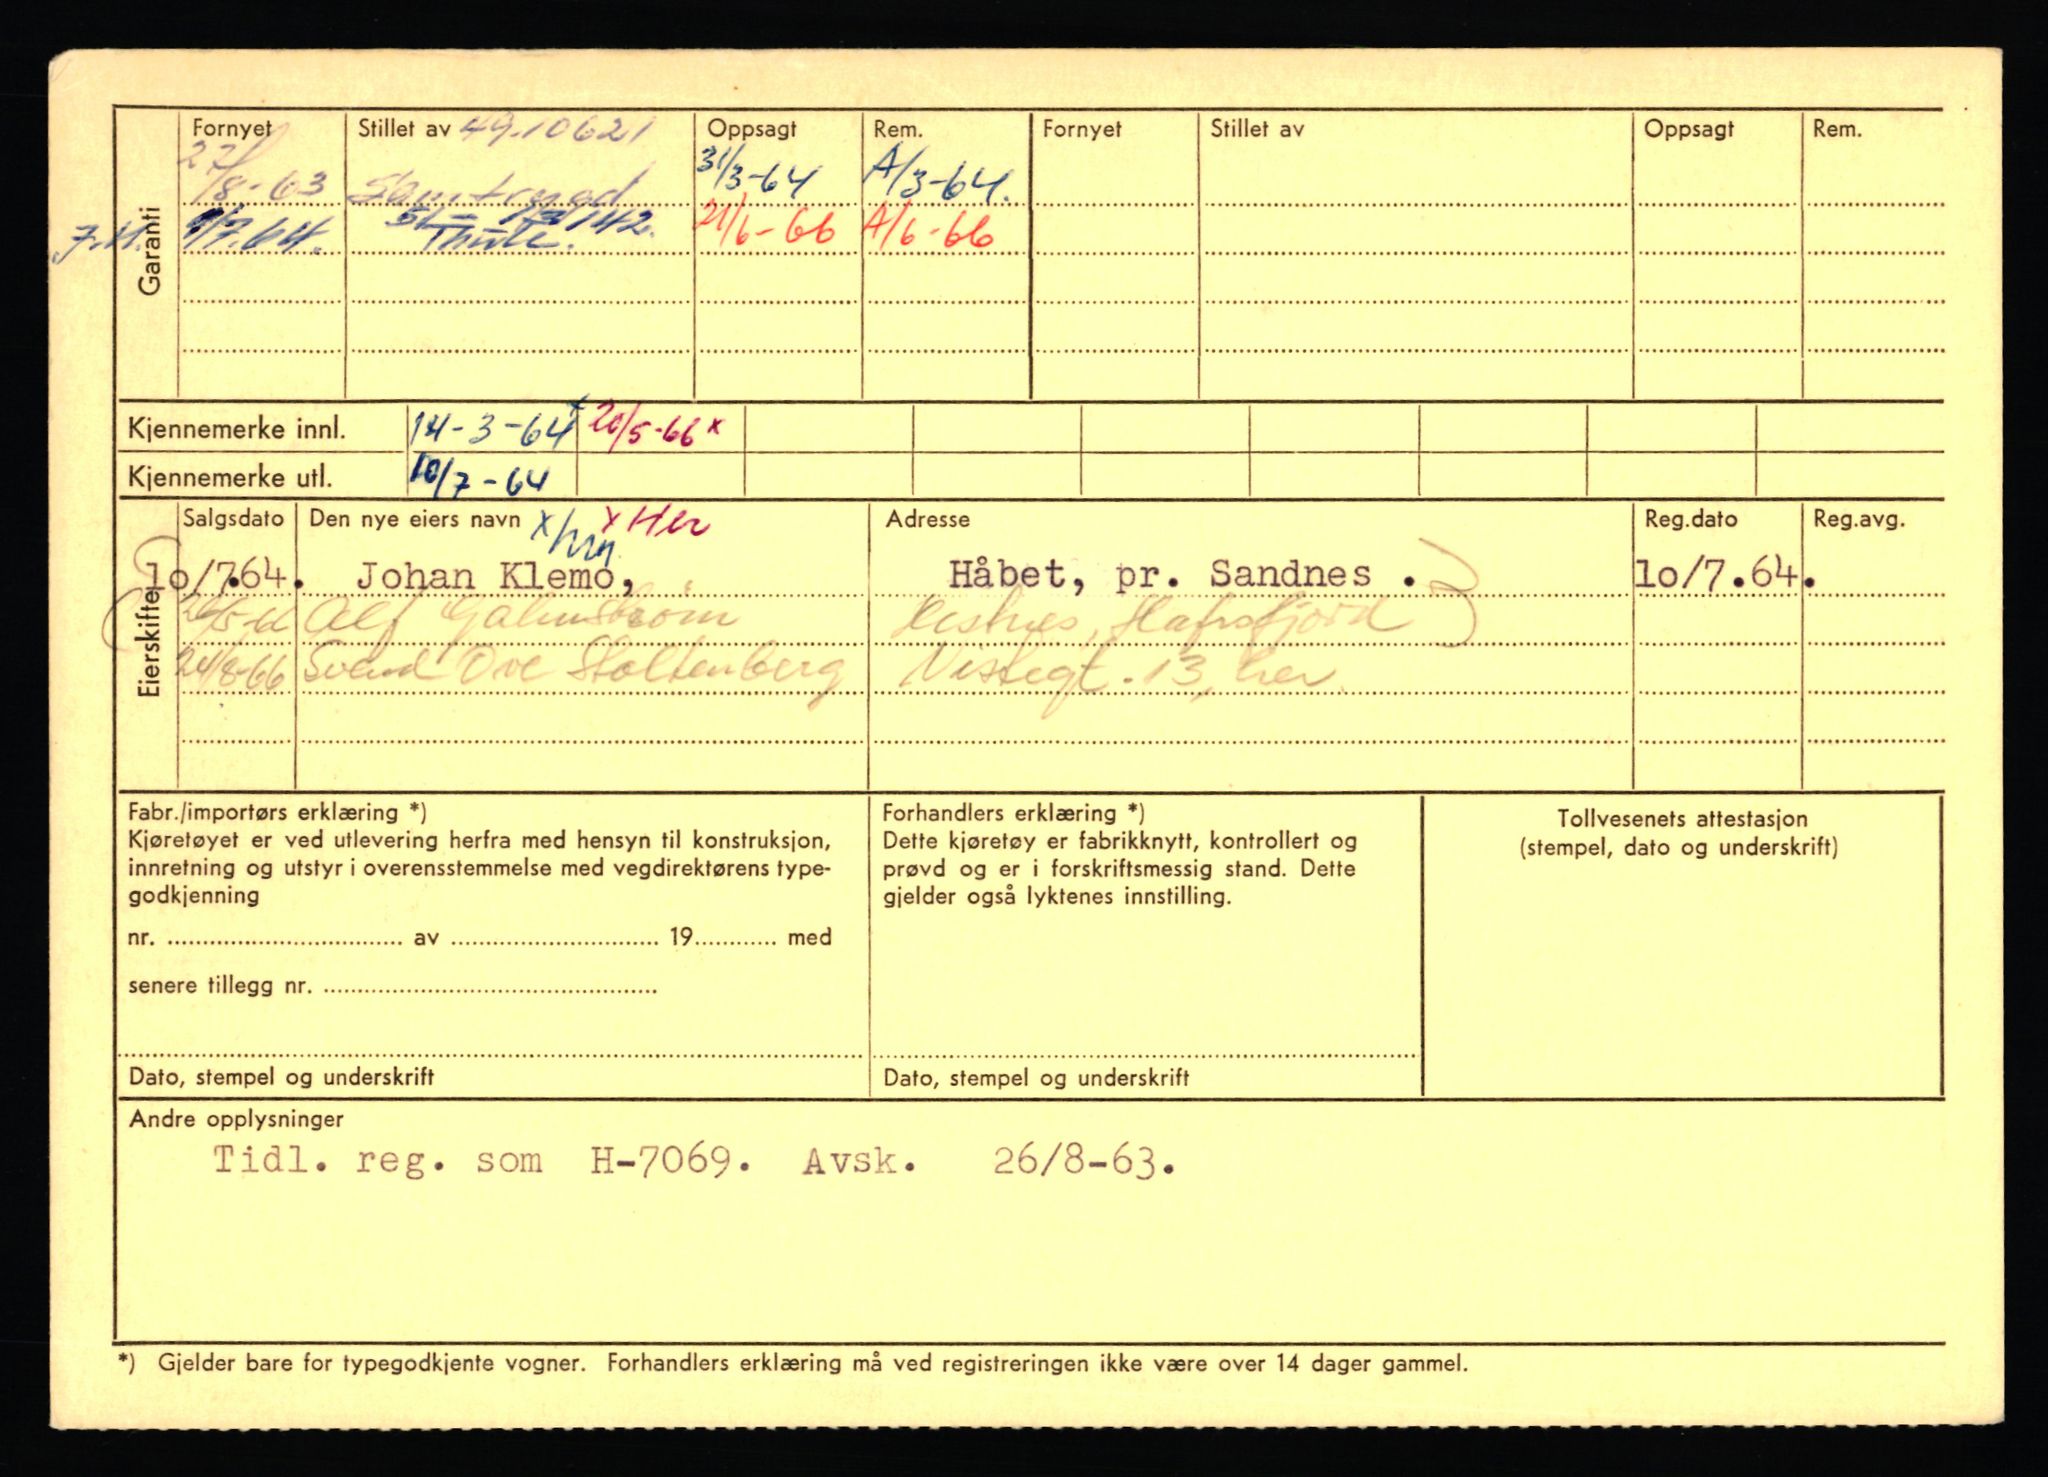 Fornyet Stillet av 49.10621 Oppsagt Rem. Fornyet Stillet av Oppsagt Rem.
27/8-63 Samtrygd 31/3-64 A/3-64.
7.64. Thule. 142. 21/6-66 A/6-66
Garanti
Kjennemerke innl. 14-3-64 x 20/5-66 x
Kjennemerke utl. 10/7-64
Eierskifte
Salgsdato Den nye eiers navn x x Her Adresse Reg.dato Reg.avg.
lo/7.64. Johan Klemo, Håbet, pr. Sandnes . lo/7.64.
Alf Hafrsfjord
24/8-66 Svend Ove Stoltenberg Vistegt. 13, her.
Fabr./importørs erklæring *)
Kjøretøyet er ved utlevering herfra med hensyn til konstruksjon,
innretning og utstyr i overensstemmelse med vegdirektørens type-
godkjenning
nr. av 19 med
senere tillegg nr.
Dato, stempel og underskrift
Forhandlers erklæring *)
Dette kjøretøy er fabrikknytt, kontrollert og
prøvd og er i forskriftsmessig stand. Dette
gjelder også lyktenes innstilling.
Dato, stempel og underskrift
Tollvesenets attestasjon
(stempel, dato og underskrift)
Andre opplysninger
Tidl. reg. som H-7069. Avsk. 26/8-63.
*) Gjelder bare for typegodkjente vogner. Forhandlers erklæring må ved registreringen ikke være over 14 dager gammel.